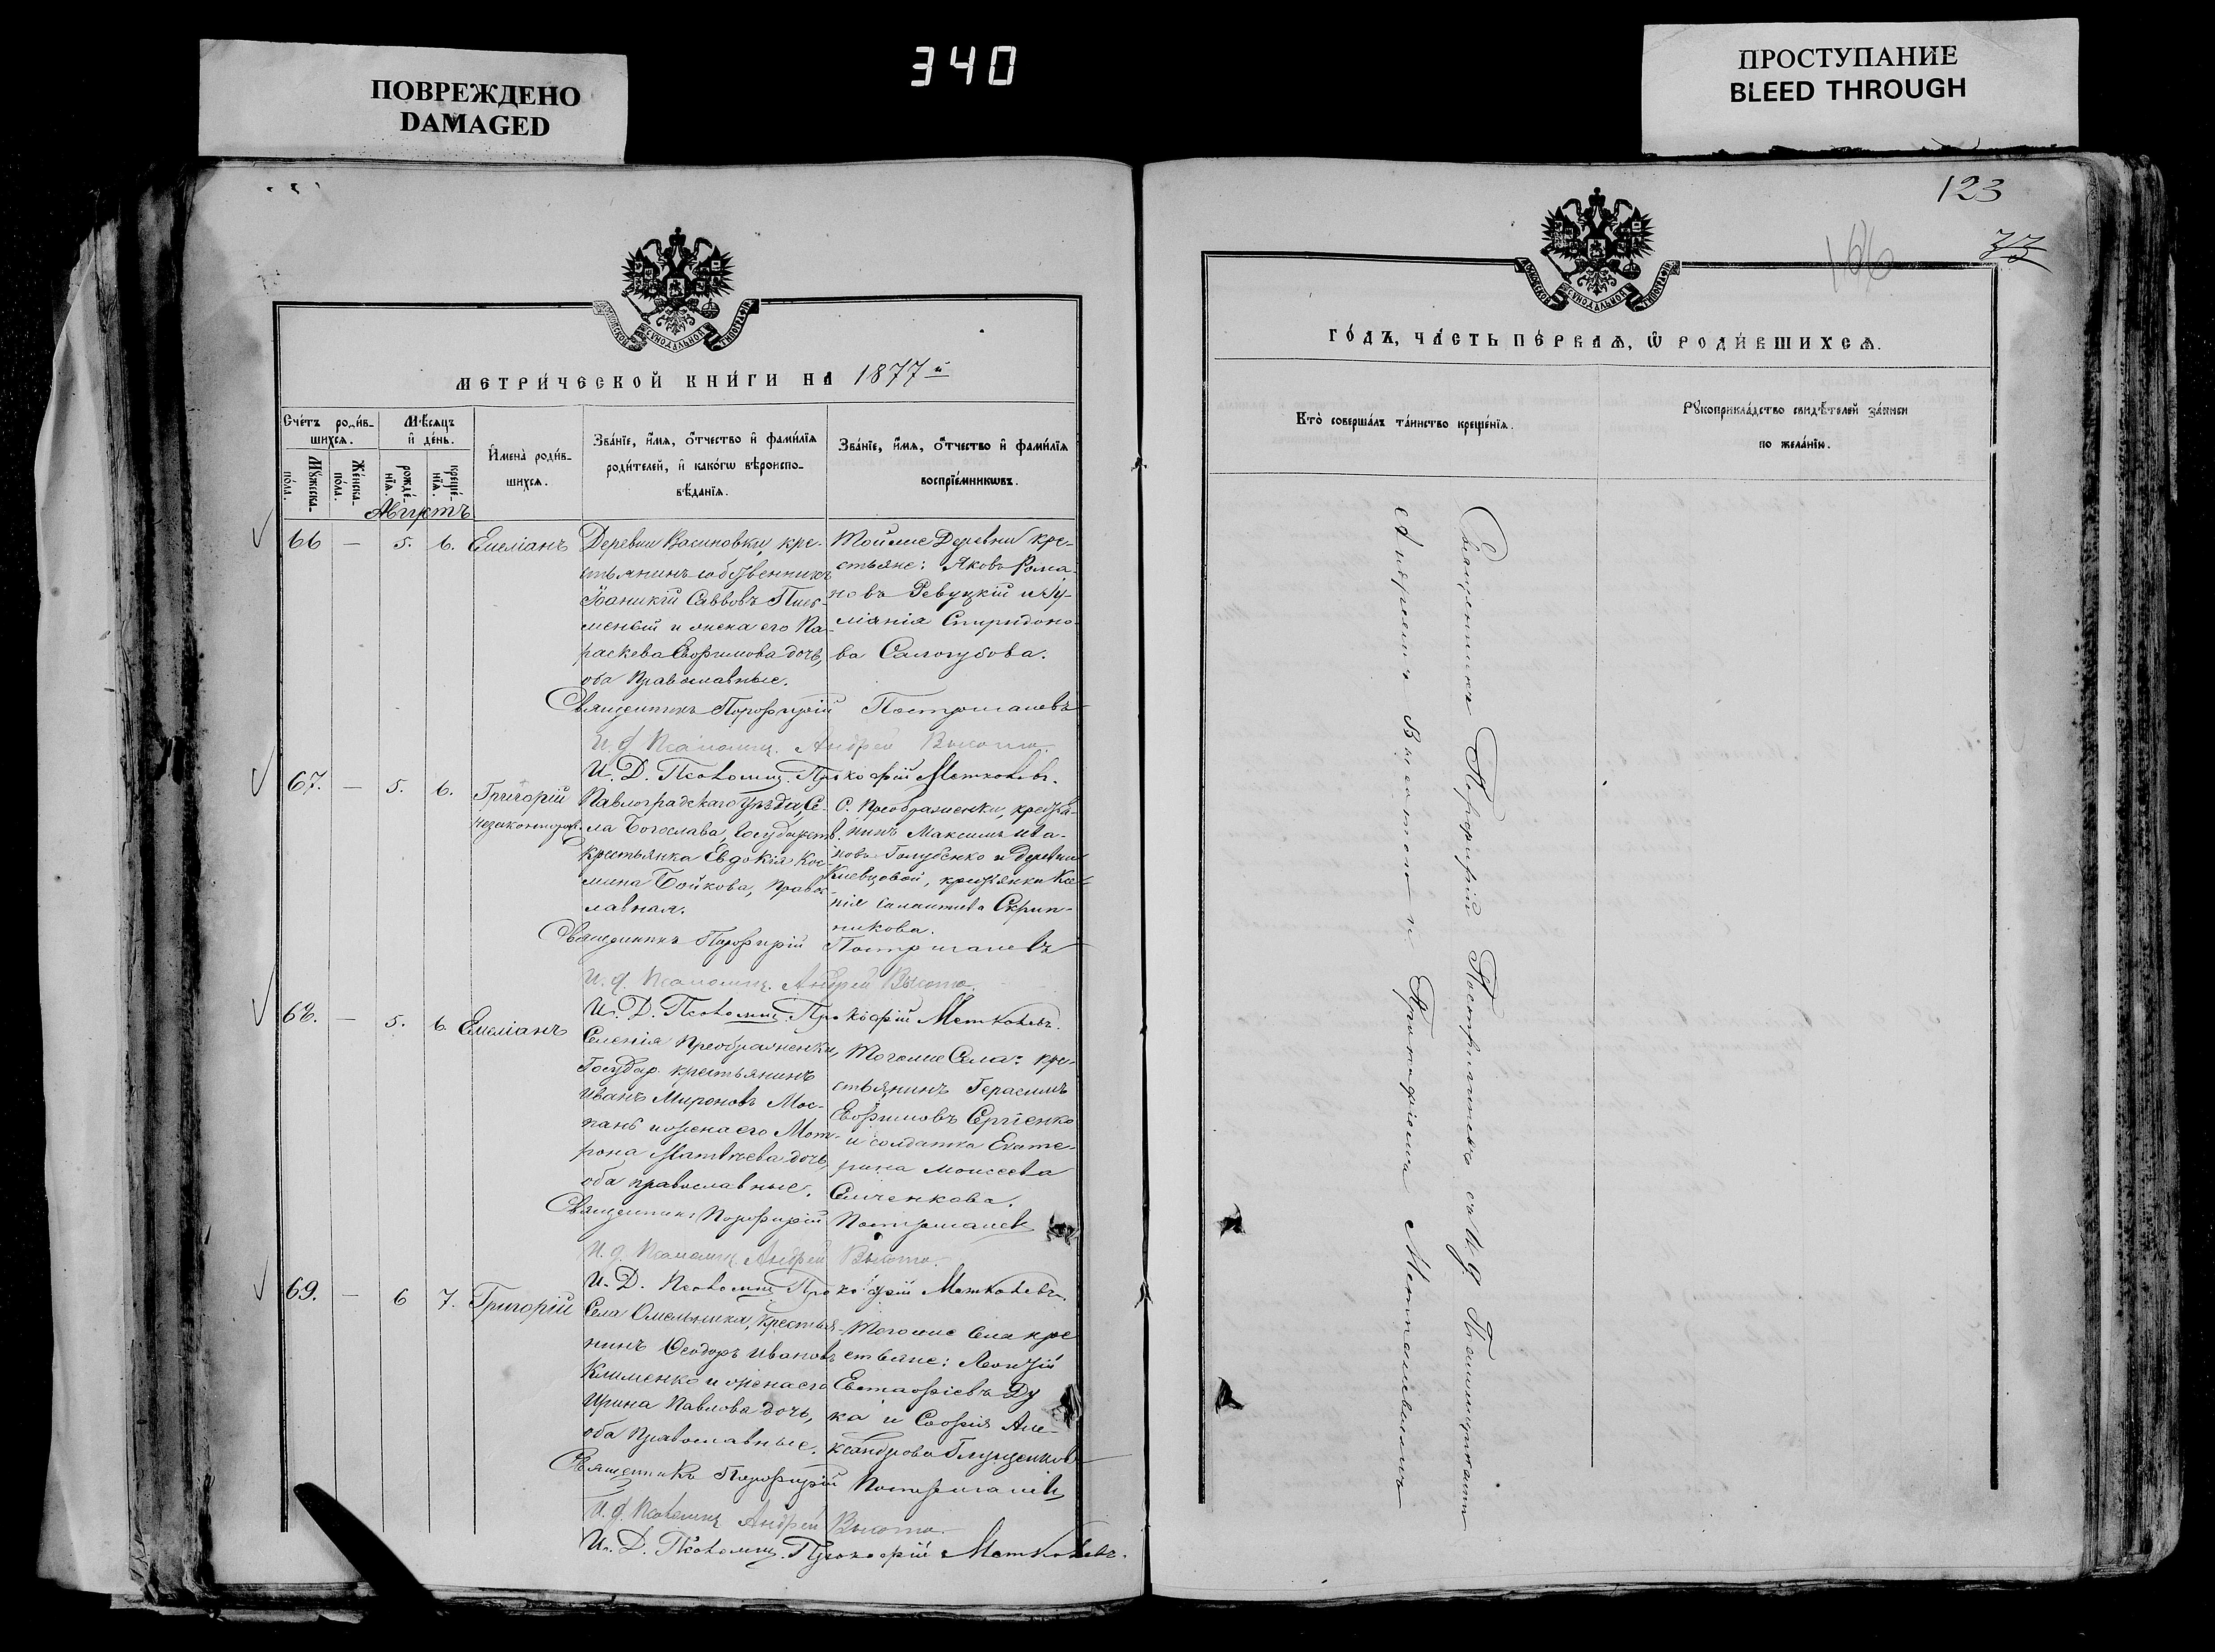 ПОВРЕЖДЕНО
DAMAGED
340
ПРОСТУПАНИЕ
BLEED THROUGH
МЕТРИ́ЧЕСКОЙ КНИ́ГИ НА 1877й
Сче́тъ роди́в-
шихся.
Му́жеска
по́ла.
Же́нска
по́ла.
Мѣ́сяцъ
и҆ де́нь.
рожде́-
нїя.
креще́-
нїя.
И҆мена̀ роди́в-
шихся.
Зва́нїе, и҆́мя, ѻ҆́тчество и҆ фами́лїя
роди́телей, и҆ како́гѡ вѣроиспо-
вѣ́данїя.
Зва́нїе, и҆́мя, ѻ҆́тчество и҆ фами́лїя
воспрїе́мникѡвъ.
Августъ
66 — 5. 6. Емеліанъ
Деревни Васиновки, кре-
стьянинъ собственникъ
Іоаникій Саввовъ Пись-
менный и жена его Па-
раскева Евфимова дочь,
оба православные.
Тойже Деревни кре-
стьяне: Яковъ Рома-
новъ Ревуцкій и Іу-
ліанія Спиридоно-
ва Салогубова.
Священникъ Порфирій Постриганевъ
И. д. Псаломщ. Андрей Высота.
И. Д. Псаломщ. ПрокофійМеткалевъ.
67. — 5. 6. Григорій
незаконнорож.
Павлоградскаго Уѣзда, Се-
ла Богослава, Государств.
крестьянка Евдокія Кос-
мина Бойкова, Правос-
лавная.
С. Преображенки, крестья-
нинъ Максимъ Ива-
новъ Голубенко и деревни
крестьянка Ксе-
нія Скрип-
никова.
Священникъ Порфирій Постриганевъ
И. д. Псаломщ. Андрей Высота.
И. Д. Псаломщ. Прокофій Меткалевъ.
68. — 5. 6. Емеліанъ
Селенія Преображенки,
Государ. крестьянинъ
Иванъ Мироновъ Мос-
панъ и жена его Мот-
рона Матвѣева дочь,
оба православные.
Тогоже Села: кре-
стьянинъ Герасимъ
Евфимовъ Сергіенко
и солдатка Екате-
рина Моисеева
Емченкова.
Священникъ Порфирій Постриганевъ
И. д. Псаломщ. Андрей Высота.
И. Д. Псаломщ. Прокофій Меткалевъ.
69. — 6 7. Григорій
Села Омельника, крестья-
нинъ Ѳеодоръ Ивановъ
Клименко и жена его
Ирина Павлова дочь,
оба православные.
Тогоже Села кре
стьяне: Леонтій
Евстафіевъ Ду
ка и Софія Але-
ксандрова Глущенкова
Священникъ Порфирій Постриганевъ
И. д. Псаломщ. Андрей Высота.
И. Д. Псаломщ. Прокофій Меткалевъ.
123
166
73
ГО́ДЪ, ЧА́СТЬ ПЕ́РВАЯ, Ѡ҆ РОДИ́ВШИХСЯ.
Кто̀ соверша́лъ та́инство креще́нїя.
Рꙋкоприкла́дство свидѣ́телей за́писи
по жела́нїю.
Священникъ Порфирій Постриганевъ съ И. д. Псаломщиками
Андреемъ Высотою и Прокофіемъ Меткалевымъ